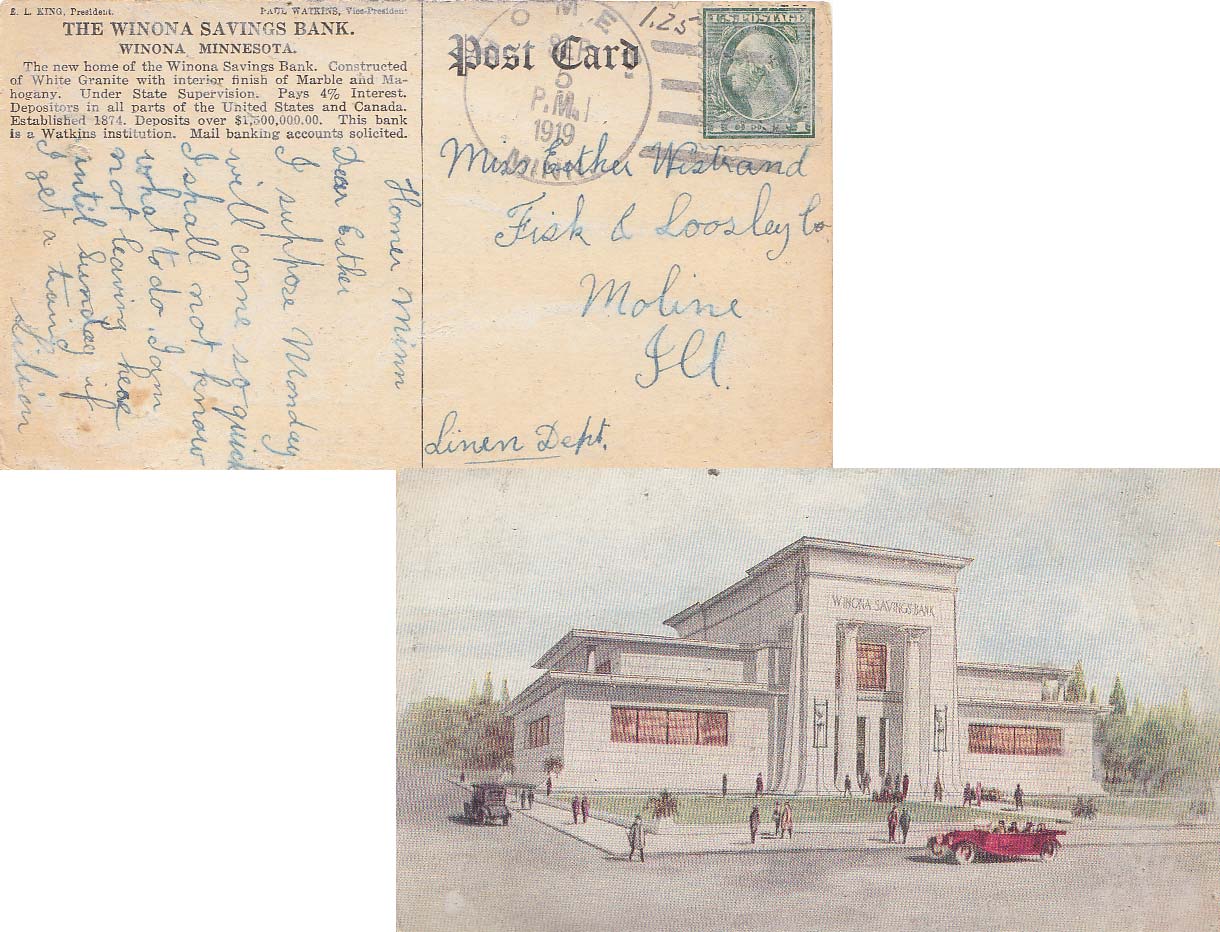 E. L. KING, President. PAUL WATKINS, Vice-President
THE WINONA SAVINGS BANK.
WINONA MINNESOTA.
The new home of the Winona Savings Bank. Constructed
of White Granite with interior finish of Marble and Ma-
hogany. Under State Supervision. Pays 4% Interest.
Depositors in all parts of the United States and Canada.
Established 1874. Deposits over $1,500,000.00. This bank
is a Watkins institution. Mail banking accounts solicited.
Homer Minn
Dear Esther
I suppose Monday
will come so quick
I shall not know
what to do. I am
not leaving here
until Sunday if
I get a
Lillian
Post Card
P.M.
1919
MINN
1.25
U.S. POSTAGE
Miss Esther Westrand
Fisk & Loosley Co.
Moline
Ill.
Linen Dept.
WINONA SAVINGS BANK